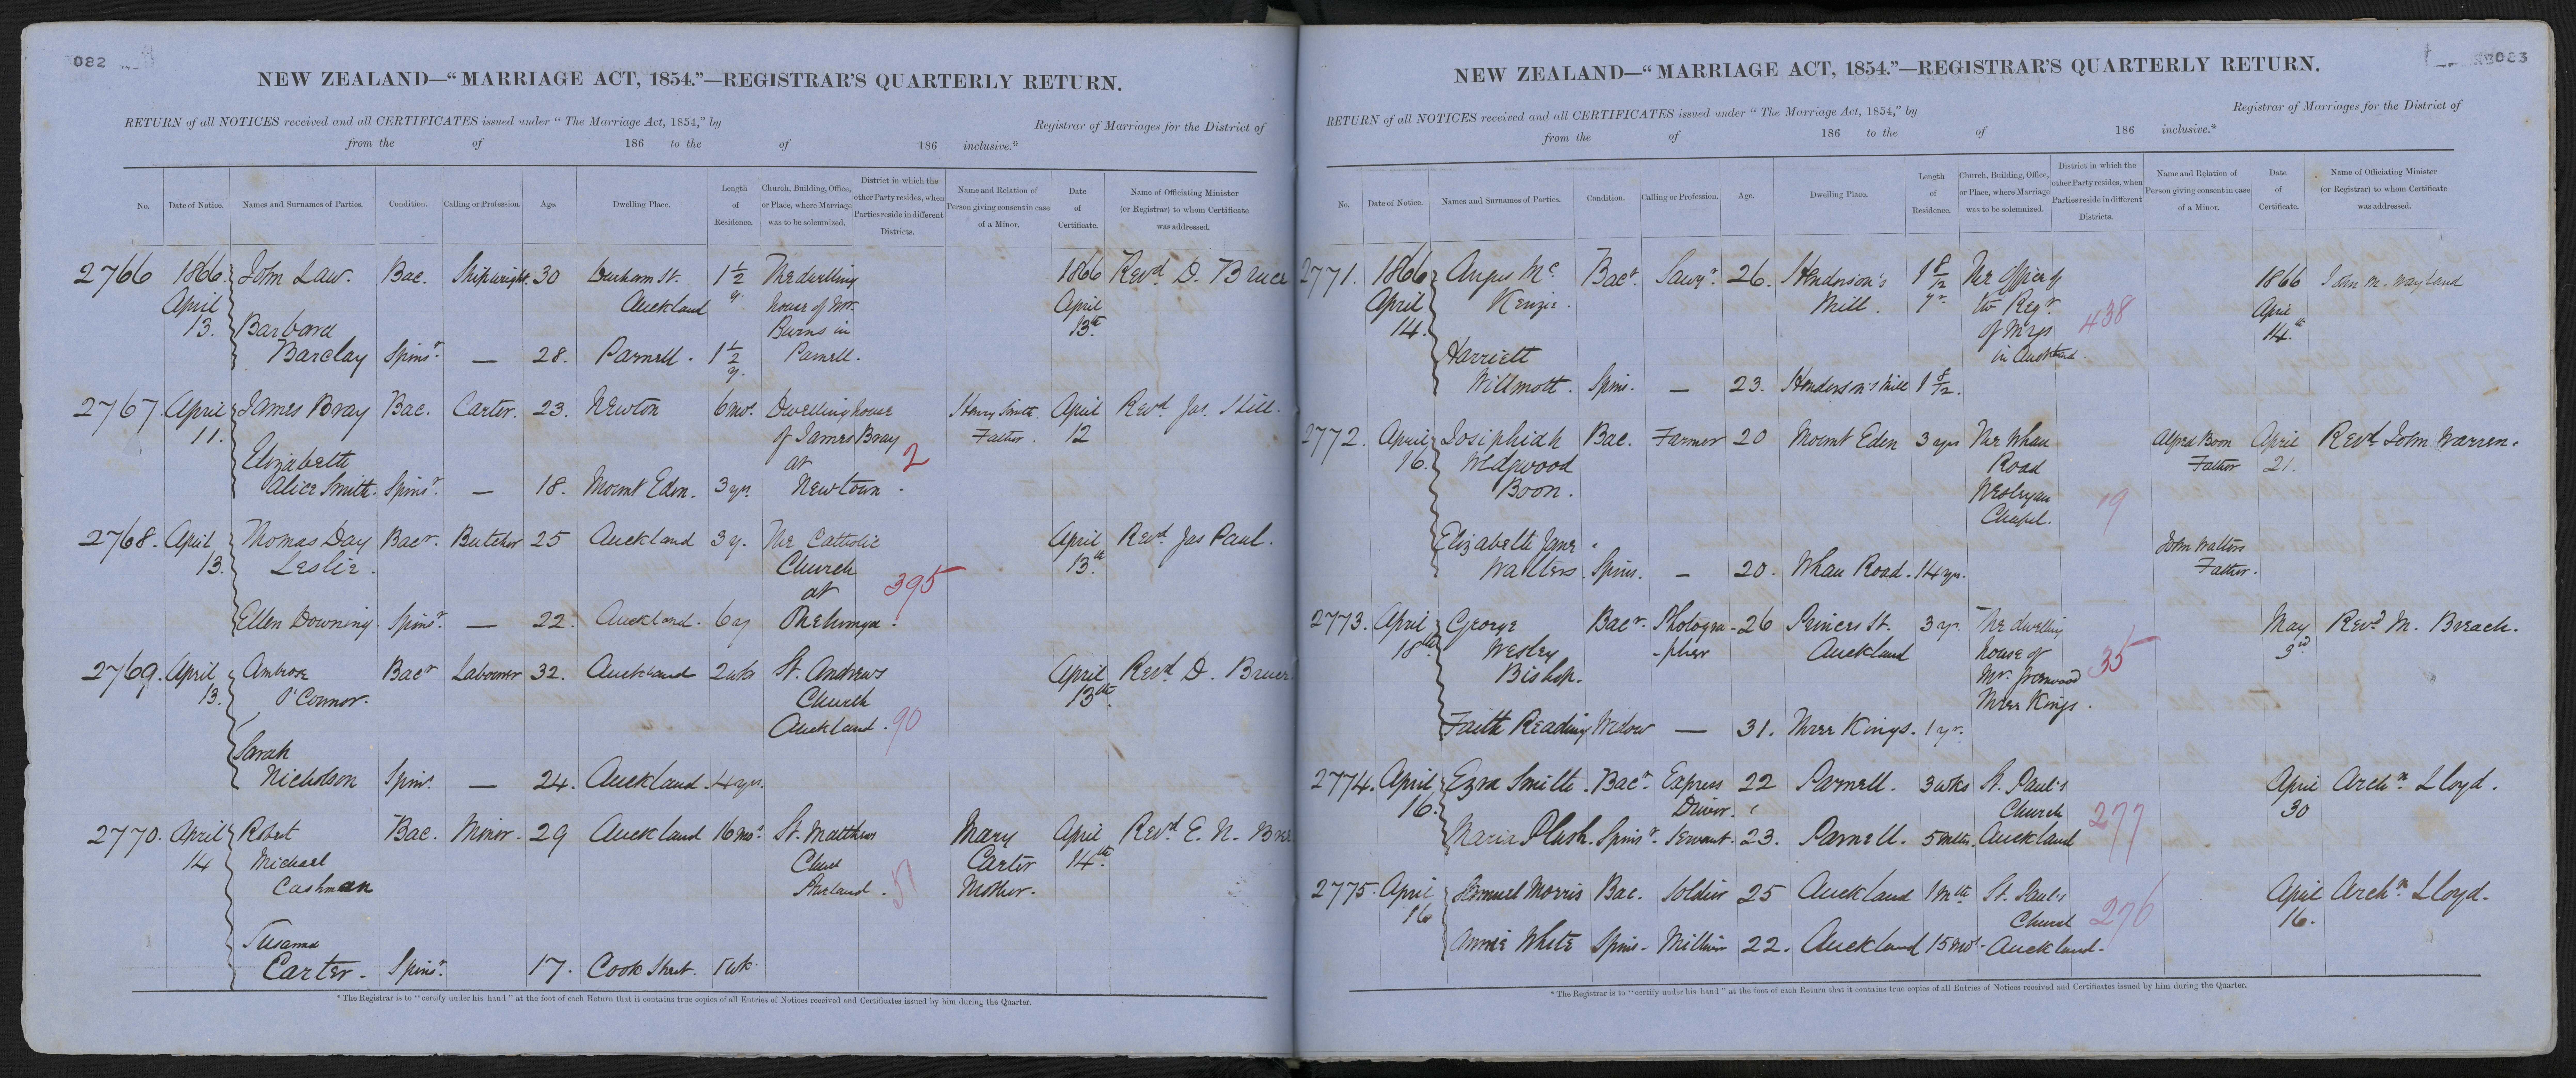 082
NEW ZEALAND—"MARRIAGE ACT, 1854."—REGISTRAR'S QUARTERLY RETURN.
RETURN of all NOTICES received and all CERTIFICATES issued under "The Marriage Act, 1854," by Registrar of Marriages for the District of
from the of 186 to the of 186 inclusive.*
No. Date of Notice. Names and Surnames of Parties. Condition. Calling or Profession. Age. Dwelling Place. Length of Residence. Church, Building, Office, or Place, where Marriage was to be solemnized. District in which the other Party resides, when Parties reside in different Districts. Name and Relation of Person giving consent in case of a Minor. Date of Certificate. Name of Officiating Minister (or Registrar) to whom Certificate was addressed.
2766 1866. John Law. Bac. Shipwright. 30 Durham St. 1 1/2 The dwelling 1866 Revd. D. Bruce
April Auckland y. house of Mr. April
13. Barbara Burns in 13th
Barclay Spinsr. — 28. Parnell. 1 1/2 y. Parnell.
2767. April James Bray Bac. Carter. 23. Newton 6 mos. Dwelling house Henry Smith April Revd. Jas. Hill.
11. of James Bray Father. 12
Elizabeth at 2
Alice Smith. Spinsr. — 18. Mount Eden. 3 yrs. Newtown.
2768. April Thomas Day Bacr. Butcher 25 Auckland 3 y. The Catholic April Revd. Jas Paul.
13. Leslie. Church 13th
at 395
Ellen Downing. Spinsr. — 22. Auckland. 6 y Onehunga.
2769. April Ambrose Bacr Labourer 32. Auckland 2 wks St. Andrews April Revd. D. Bruce
13. O'Connor. Church 13th
Auckland. 90
Sarah
Nicholson Spinr. — 24. Auckland. 4 yrs.
2770. April Robert Bac. Miner. 29 Auckland 16 mos. St. Matthews Mary April Revd. E. N.
14 Michael Church Carter 14th
Cashman Auckland. 51 Mother.
Susanna
Carter. Spinsr. 17. Cook Street. 1 wk.
* The Registrar is to "certify under his hand" at the foot of each Return that it contains true copies of all Entries of Notices received and Certificates issued by him during the Quarter.
NEW ZEALAND—"MARRIAGE ACT, 1854."—REGISTRAR'S QUARTERLY RETURN.
RETURN of all NOTICES received and all CERTIFICATES issued under "The Marriage Act, 1854," by Registrar of Marriages for the District of
from the of 186 to the of 186 inclusive.*
No. Date of Notice. Names and Surnames of Parties. Condition. Calling or Profession. Age. Dwelling Place. Length of Residence. Church, Building, Office, or Place, where Marriage was to be solemnized. District in which the other Party resides, when Parties reside in different Districts. Name and Relation of Person giving consent in case of a Minor. Date of Certificate. Name of Officiating Minister (or Registrar) to whom Certificate was addressed.
2771. 1866 Angus Mc Bacr. Sawyr. 26. Henderson's 1 8/12 The Office of 1866 John M. Wayland
April Kenzie. Mill. yr. the Regr. April
14. of Mrgs 438 14th
Harriett in Auckland.
Willmott. Spin. — 23. Henderson's Mill 1 8/12.
2772. April Josiphiah Bac. Farmer 20 Mount Eden 3 yrs The Whau Alfred Boon April Revd. John Warren.
16. Wedgwood Road Father 21.
Boon. Wesleyan 19
Chapel.
Elizabeth Jane John Walters
Walters. Spins. — 20. Whau Road. 14 yrs. Father.
2773. April George Bacr. Photogra- 26 Princes St. 3 yr. The dwelling May Revd. M. Breach.
18th Wesley -pher Auckland house of 3rd
Bishop. Mr. 35
Three Kings.
Faith Reading Widow — 31. Three Kings. 1 yr.
2774. April Ezra Smith. Bacr. Express 22 Parnell. 3 wks St. Paul's April Archn. Lloyd.
16. Driver. Church 277 30
Maria Plush. Spinsr. Servant. 23. Parnell. 5 mths. Auckland
2775. April Samuel Morris Bac. Soldier 25 Auckland 1 mth St. Paul's April Archn. Lloyd.
16 Church 276 16.
Annie White Spins. Milliner 22. Auckland 15 mos. Auckland.
* The Registrar is to "certify under his hand" at the foot of each Return that it contains true copies of all Entries of Notices received and Certificates issued by him during the Quarter.